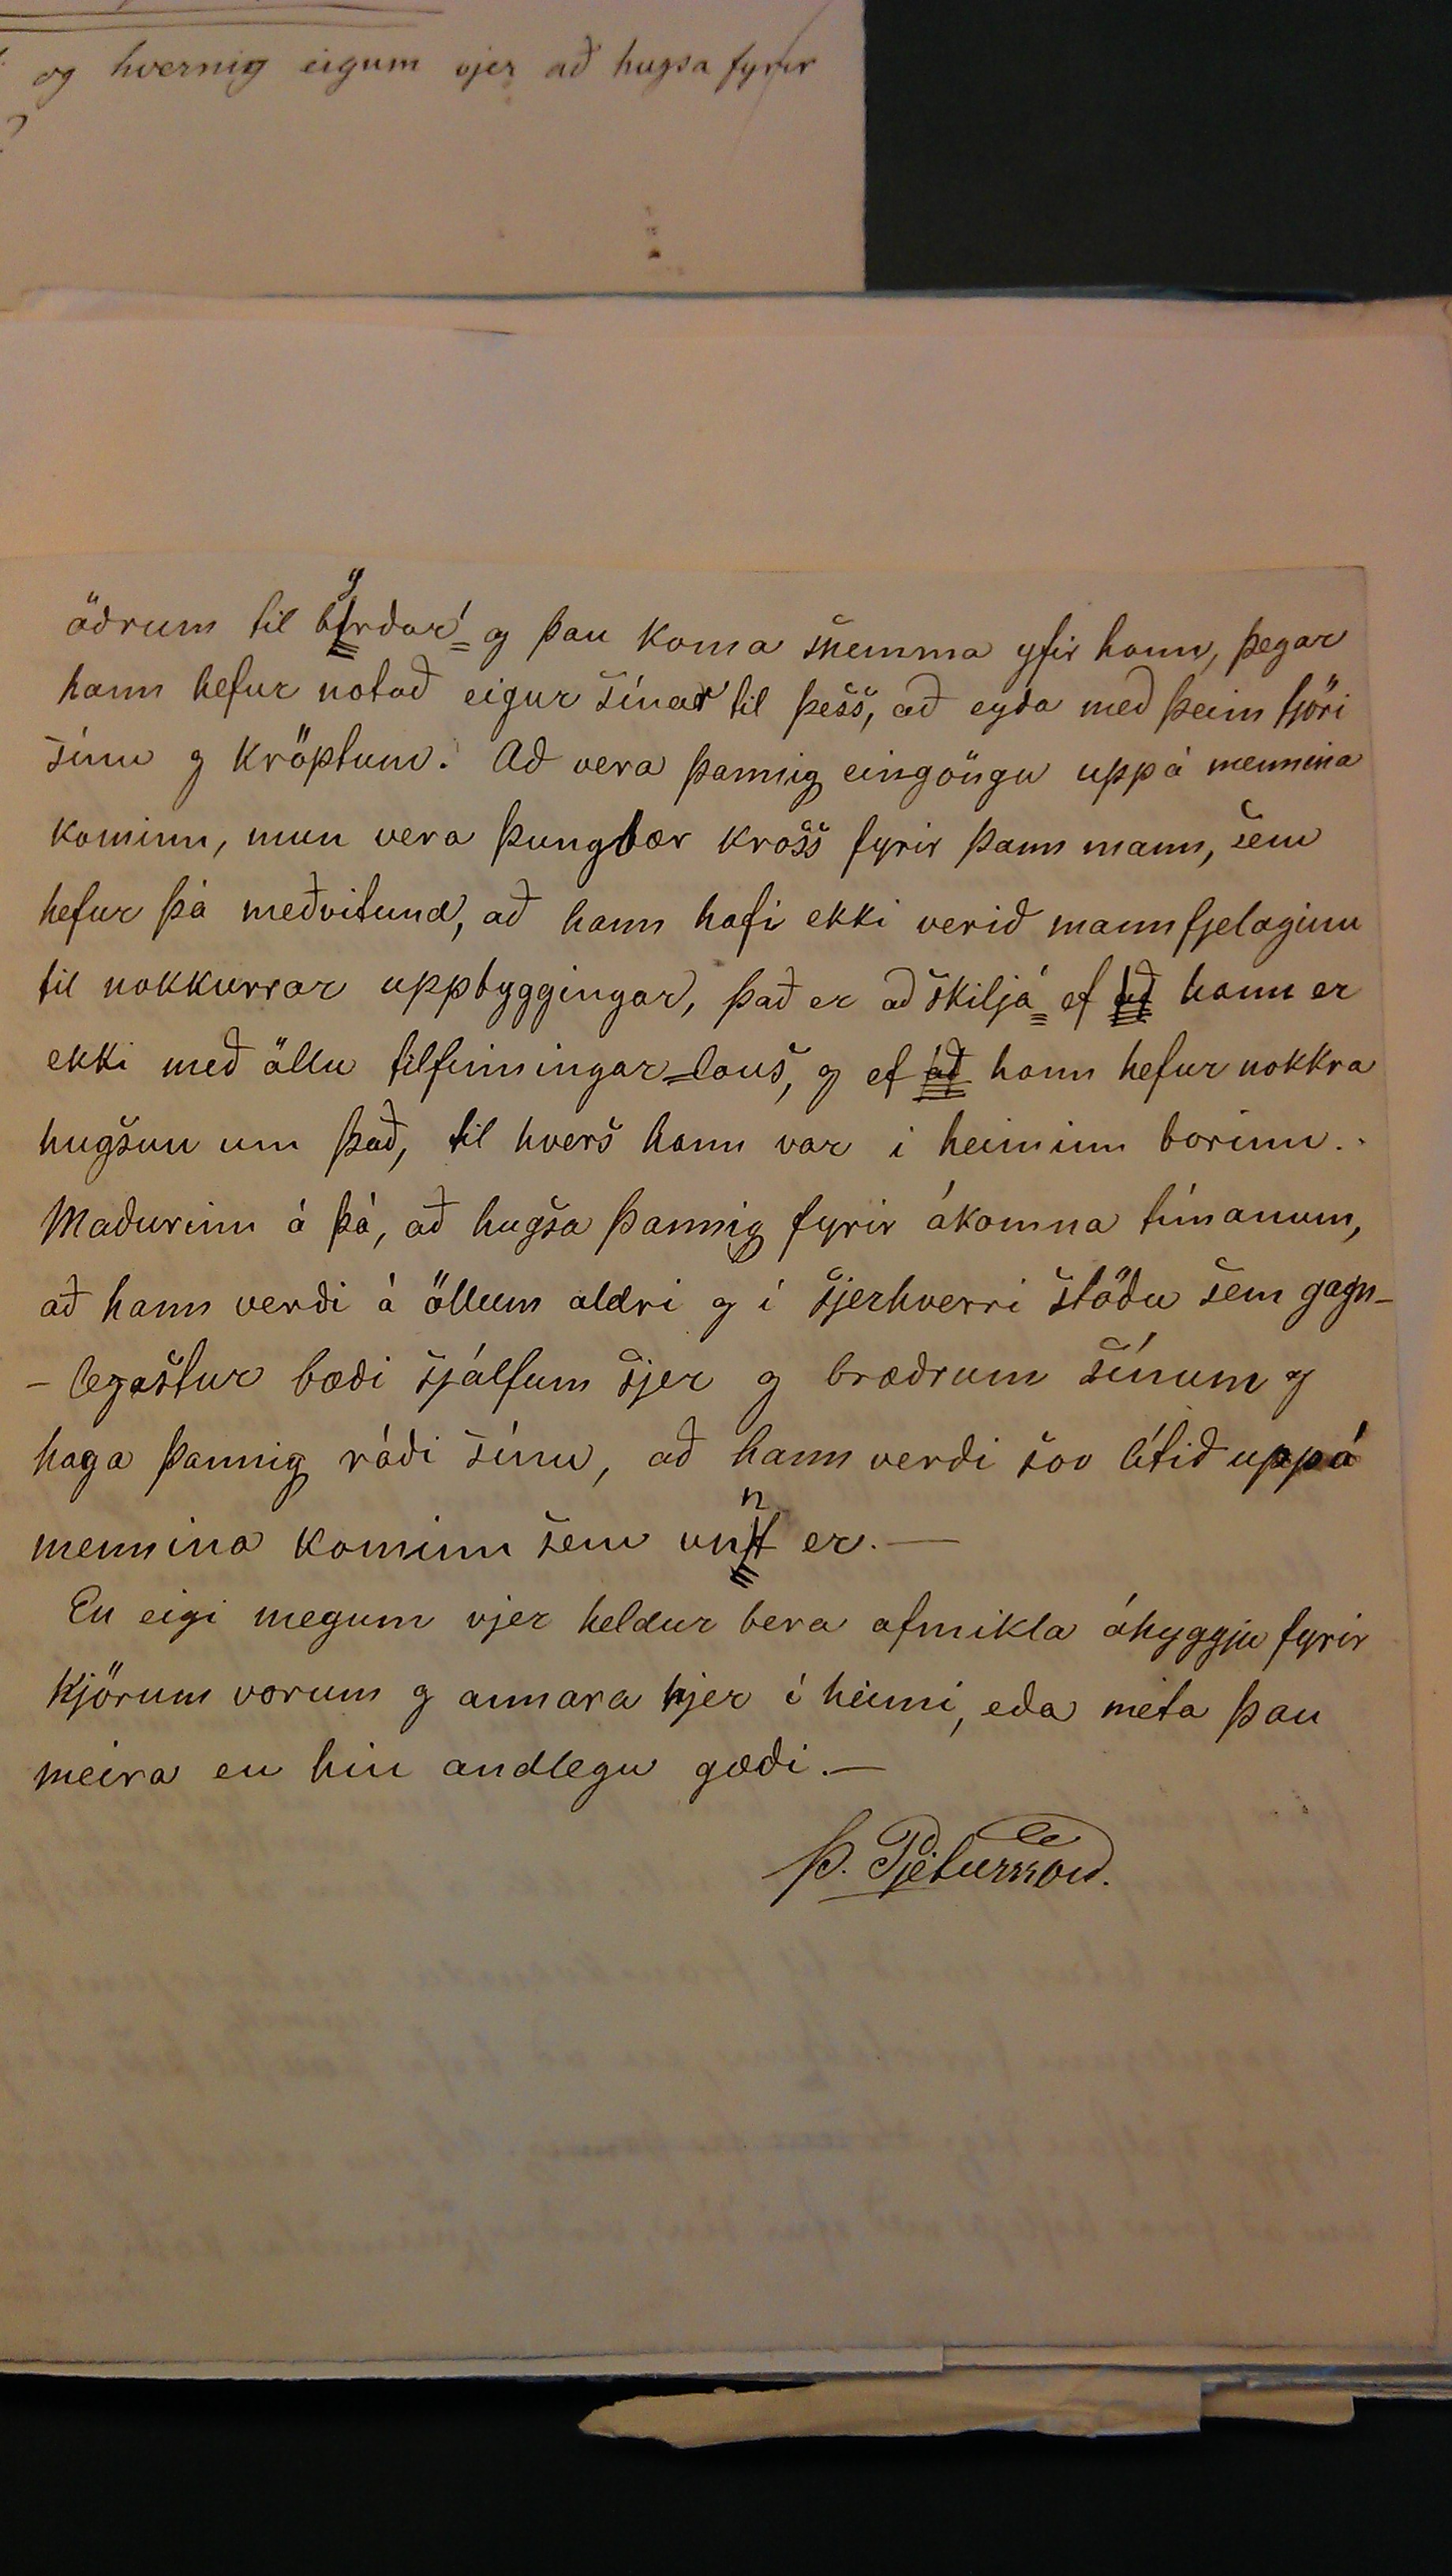 og hvernig eigum vjer að hugsa fyrir
öðrum til byrðar og þau koma snemma yfir hann, þegar
hann hefur notað eigur sínar til þess, að eyða með þeim fjöri
sínu og kröptum. Að vera þannig eingöngu uppá mennina
kominn, mun vera þungbær kross fyrir þann mann, sem
hefur þá meðvitund, að hann hafi ekki verið mannfjelaginu
til nokkurrar uppbyggingar, það er að skilja ef að hann er
ekki með öllu tilfinningar=laus, og ef að hann hefur nokkra
hugsun um það, til hvers hann var í heiminn borinn.
Maðurinn á þá, að hugsa þannig fyrir ákomna tímanum,
að hann verði á öllum aldri og í sjerhverri stöðu sem gagn-
-legastur bæði sjálfum sjer og bræðrum sínum og
haga þannig ráði sínu, að hann verði svo lítið uppá
mennina kominn sem unnt er. —
En eigi megum vjer heldur bera ofmikla áhyggju fyrir
kjörum vorum og annara hjer í heimi, eða meta þau
meira en hin andlegu gæði. —
Þ. Pjetursson.